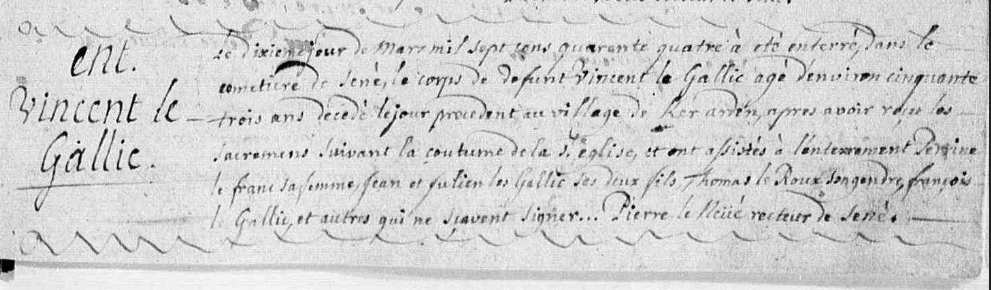 ent.
Vincent le
Gallic.
Le dixieme jour de Mars mil sept cens quarente quatre à eté enterré, dans le
cometiere de Sené, le corps de defunt Vincent le Gallic agé d'environ cinquante
trois ans décédé le jour precedent au village de Ker arden, apres avoir reçu les
sacremens suivant la coutume de la Ste église, et ont assistés à l'enterrement Perrine
le franc sa femme, Jean et Julien les Gallic ses deux fils, Thomas le Roux son gendre, françois
le Gallic, et autres qui ne sçavent signer... Pierre le Néüé recteur de Sené.